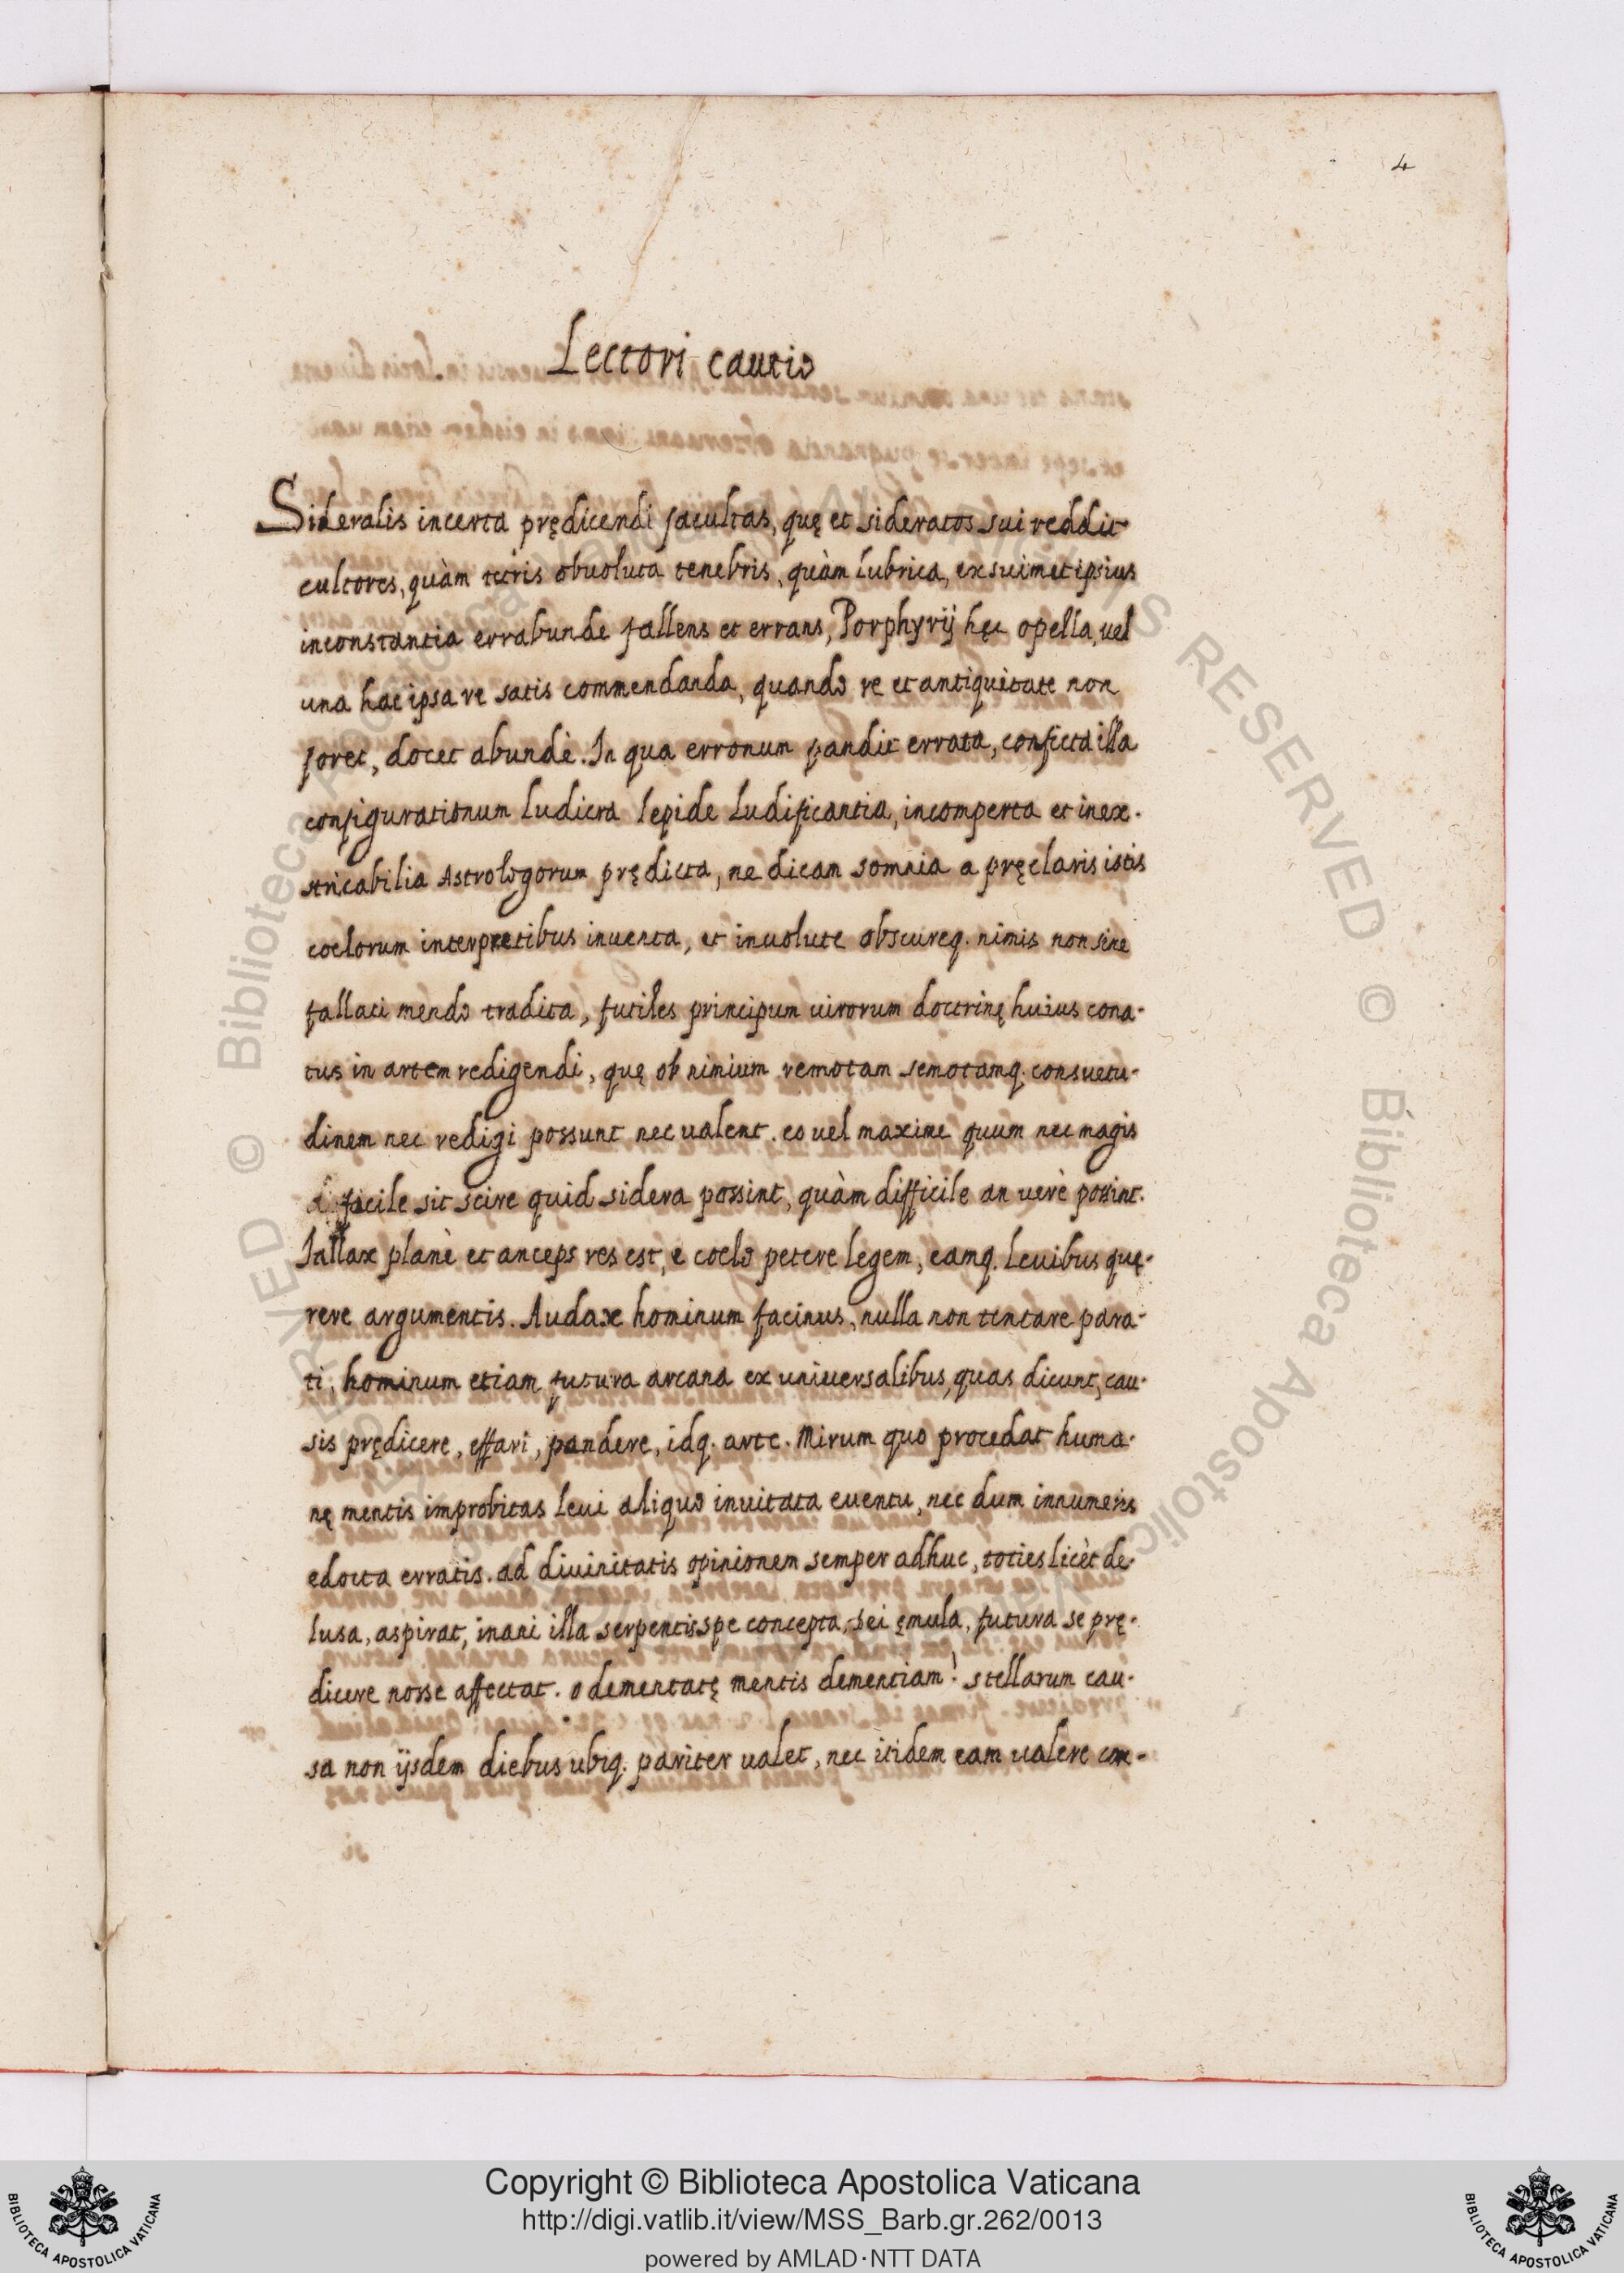 4
Lectori cautio
Sideralis incerta prędicendi facultas, quę et sideratos sui reddit
cultores, quàm tetris obuoluta tenebris, quàm lubrica, ex suimet ipsius
inconstantia errabunde fallens et errans, Porphyrij hęc opella, uel
una hac ipsa re satis commendanda, quando re et antiquitate non
foret, docet abundè. In qua erronum pandit errata, conficta illa
configurationum ludicra lepide ludificantia, incomperta et inex-
stricabilia Astrologorum prędicta, ne dicam somnia a pręclaris istis
coelorum interpretibus inuenta, et inuolute obscureq. nimis non sine
fallaci mendo tradita, futiles principum uirorum doctrinę huius cona-
tus in artem redigendi, quę ob nimium remotam semotamq. consuetu-
dinem nec redigi possunt nec ualent. eo uel maxime quum nec magis
facile sit scire quid sidera possint, quàm difficile an uerè possint.
Fallax planè et anceps res est, e coelo petere legem, eamq. leuibus quę-
rere argumentis. Audax hominum facinus, nulla non tentare para-
ti, hominum etiam futura arcana ex uniuersalibus, quas dicunt, cau-
sis prędicere, effari, pandere, idq. arte. Mirum quo procedat huma-
nę mentis improbitas leui aliquo inuitata euentu, nec dum innumeris
edocta erratis. ad diuinitatis opinionem semper adhuc, toties licèt de-
lusa, aspirat, inani illa serpentis spe concepta, Dei ęmula, futura se prę-
dicere nosse affectat. o dementatę mentis dementiam! stellarum cau-
sa non ijsdem diebus ubiq. pariter ualet, nec itidem eam ualere con-
© Biblioteca Apostolica Vaticana
Copyright © Biblioteca Apostolica Vaticana
http://digi.vatlib.it/view/MSS_Barb.gr.262/0013
powered by AMLAD·NTT DATA
BIBLIOTECA APOSTOLICA VATICANA
BIBLIOTECA APOSTOLICA VATICANA